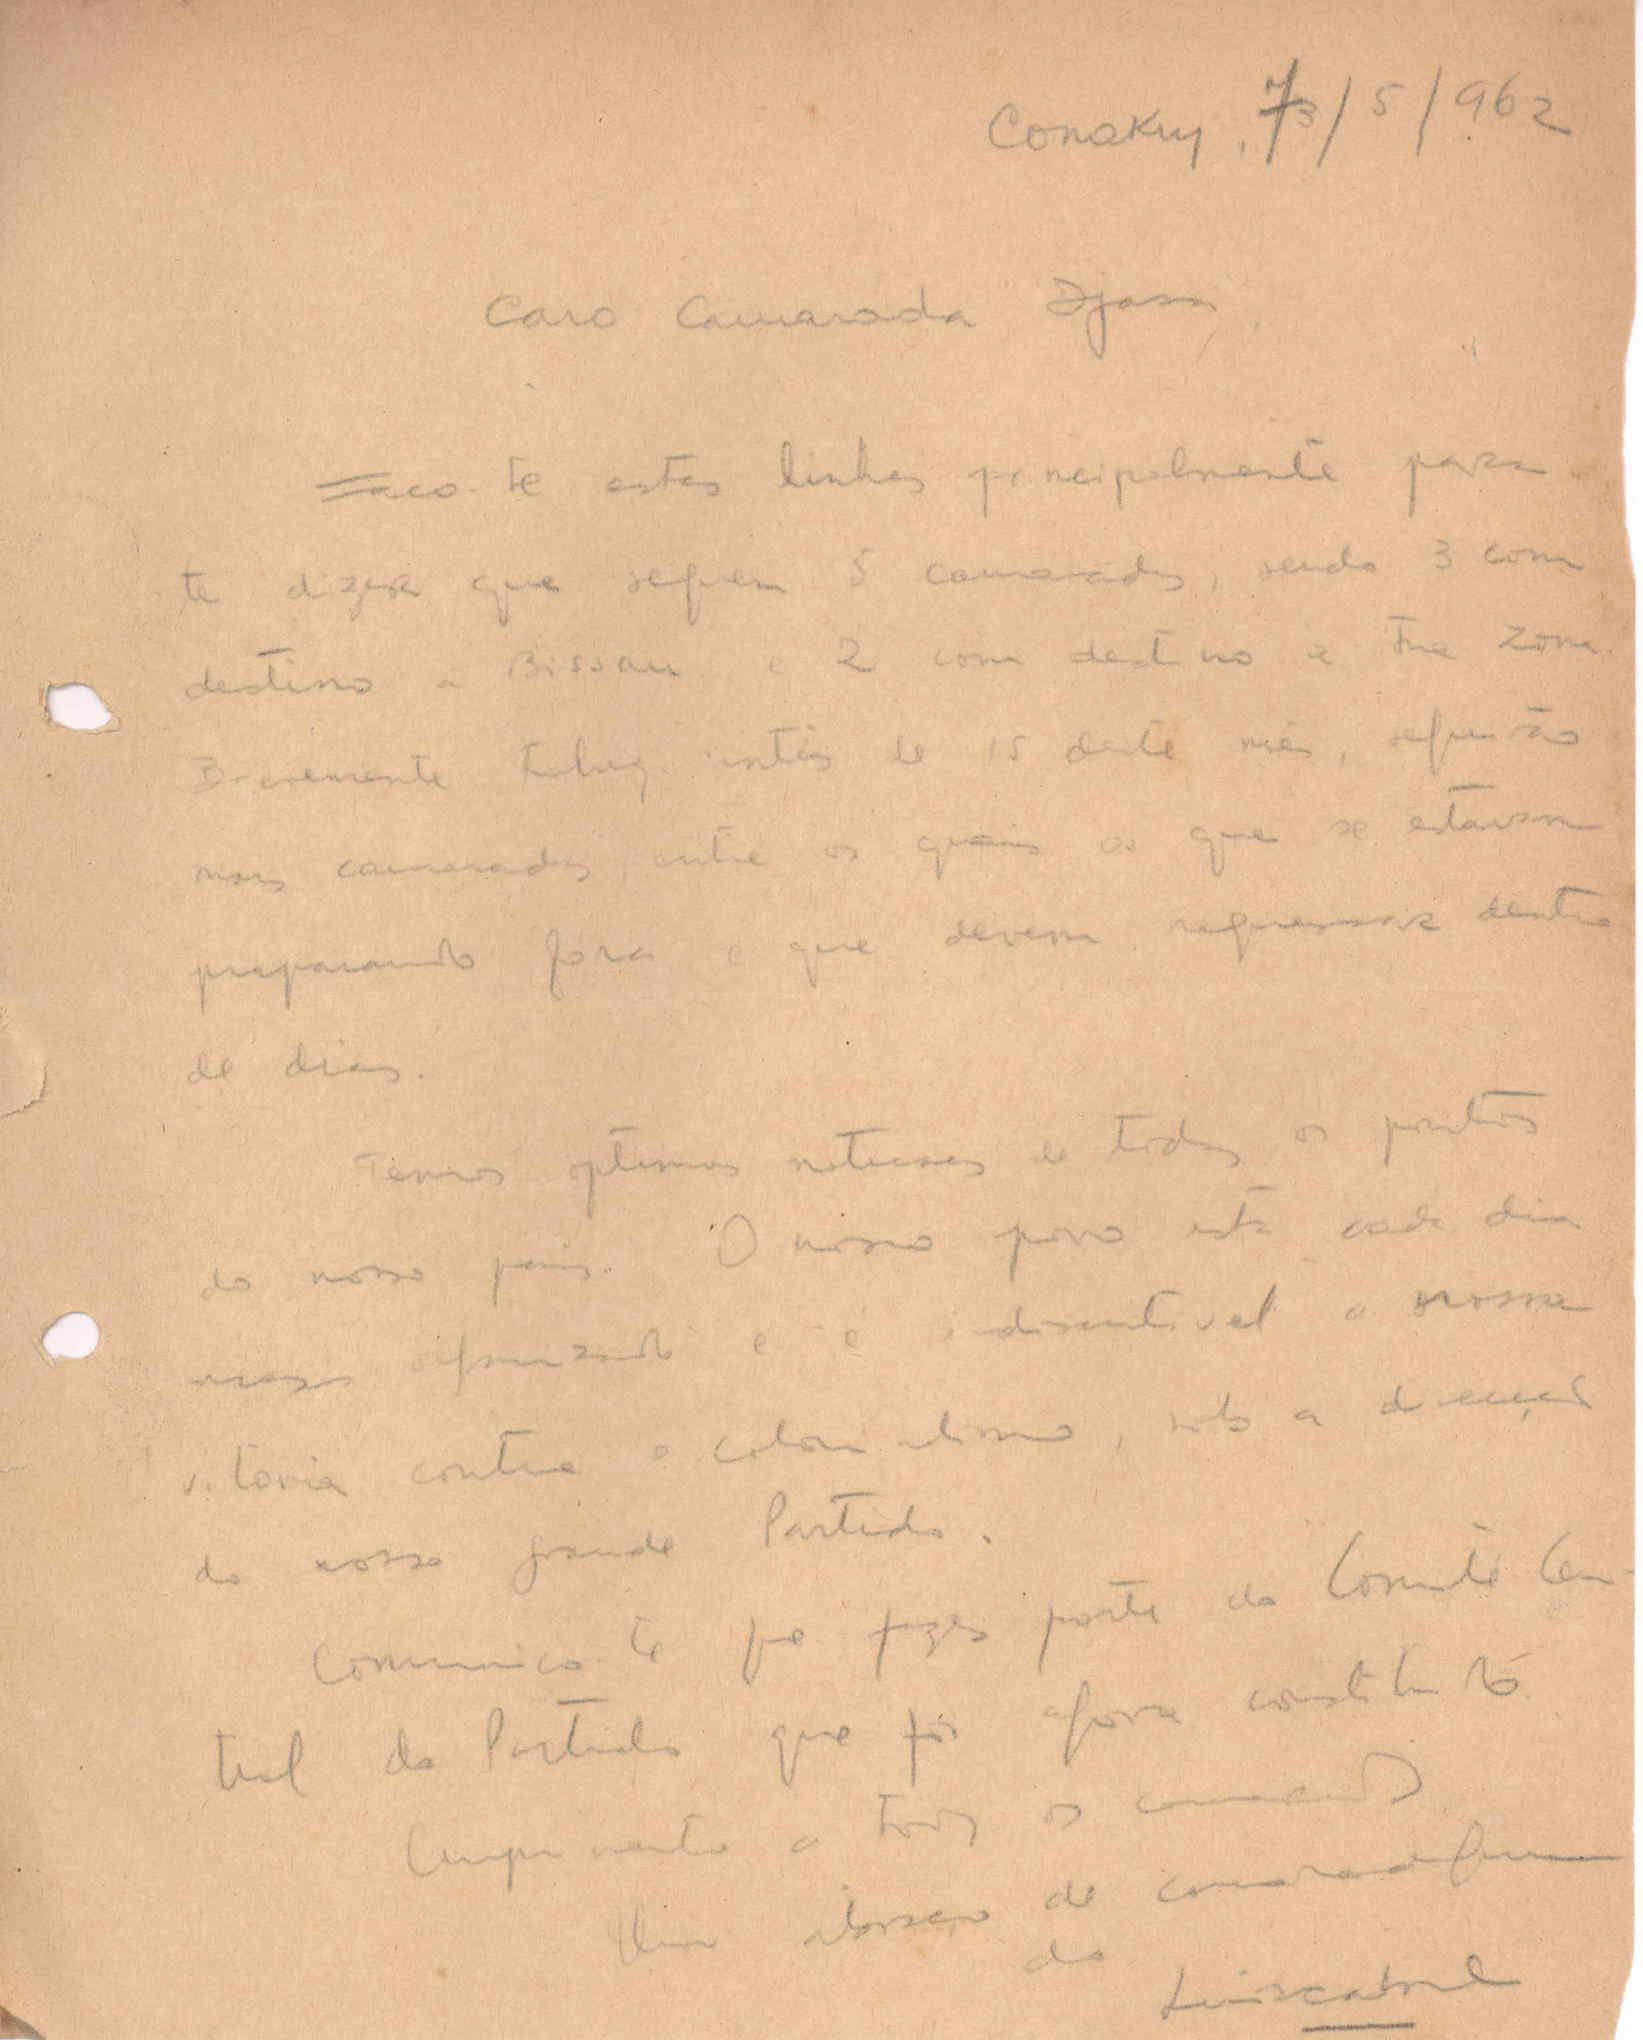 Conakry, 3/5/962
Caro Camarada Djassi,
Faço-te estas linhas principalmente para
te dizer que seguem 5 camaradas, sendo 3 com
destino a Bissau e 2 com destino a tua zona.
Brevemente talvez antes de 15 deste mês, seguirão
mais camaradas entre os quais os que se estavam
preparando fora e que devem regressar dentro
de dias.
Temos optimas noticias de todos os pontos
do nosso país. O nosso povo está cada dia
mais organizado e é indiscutivel a nossa
vitoria contra o colonialismo, sob a direcção
do nosso grande Partido.
Comunico-te que fazes parte do Comité Cen-
tral do Partido que foi agora constituído.
Cumprimento a todos os camaradas
Um abraço de camaradagem
do
Luiz Cabral